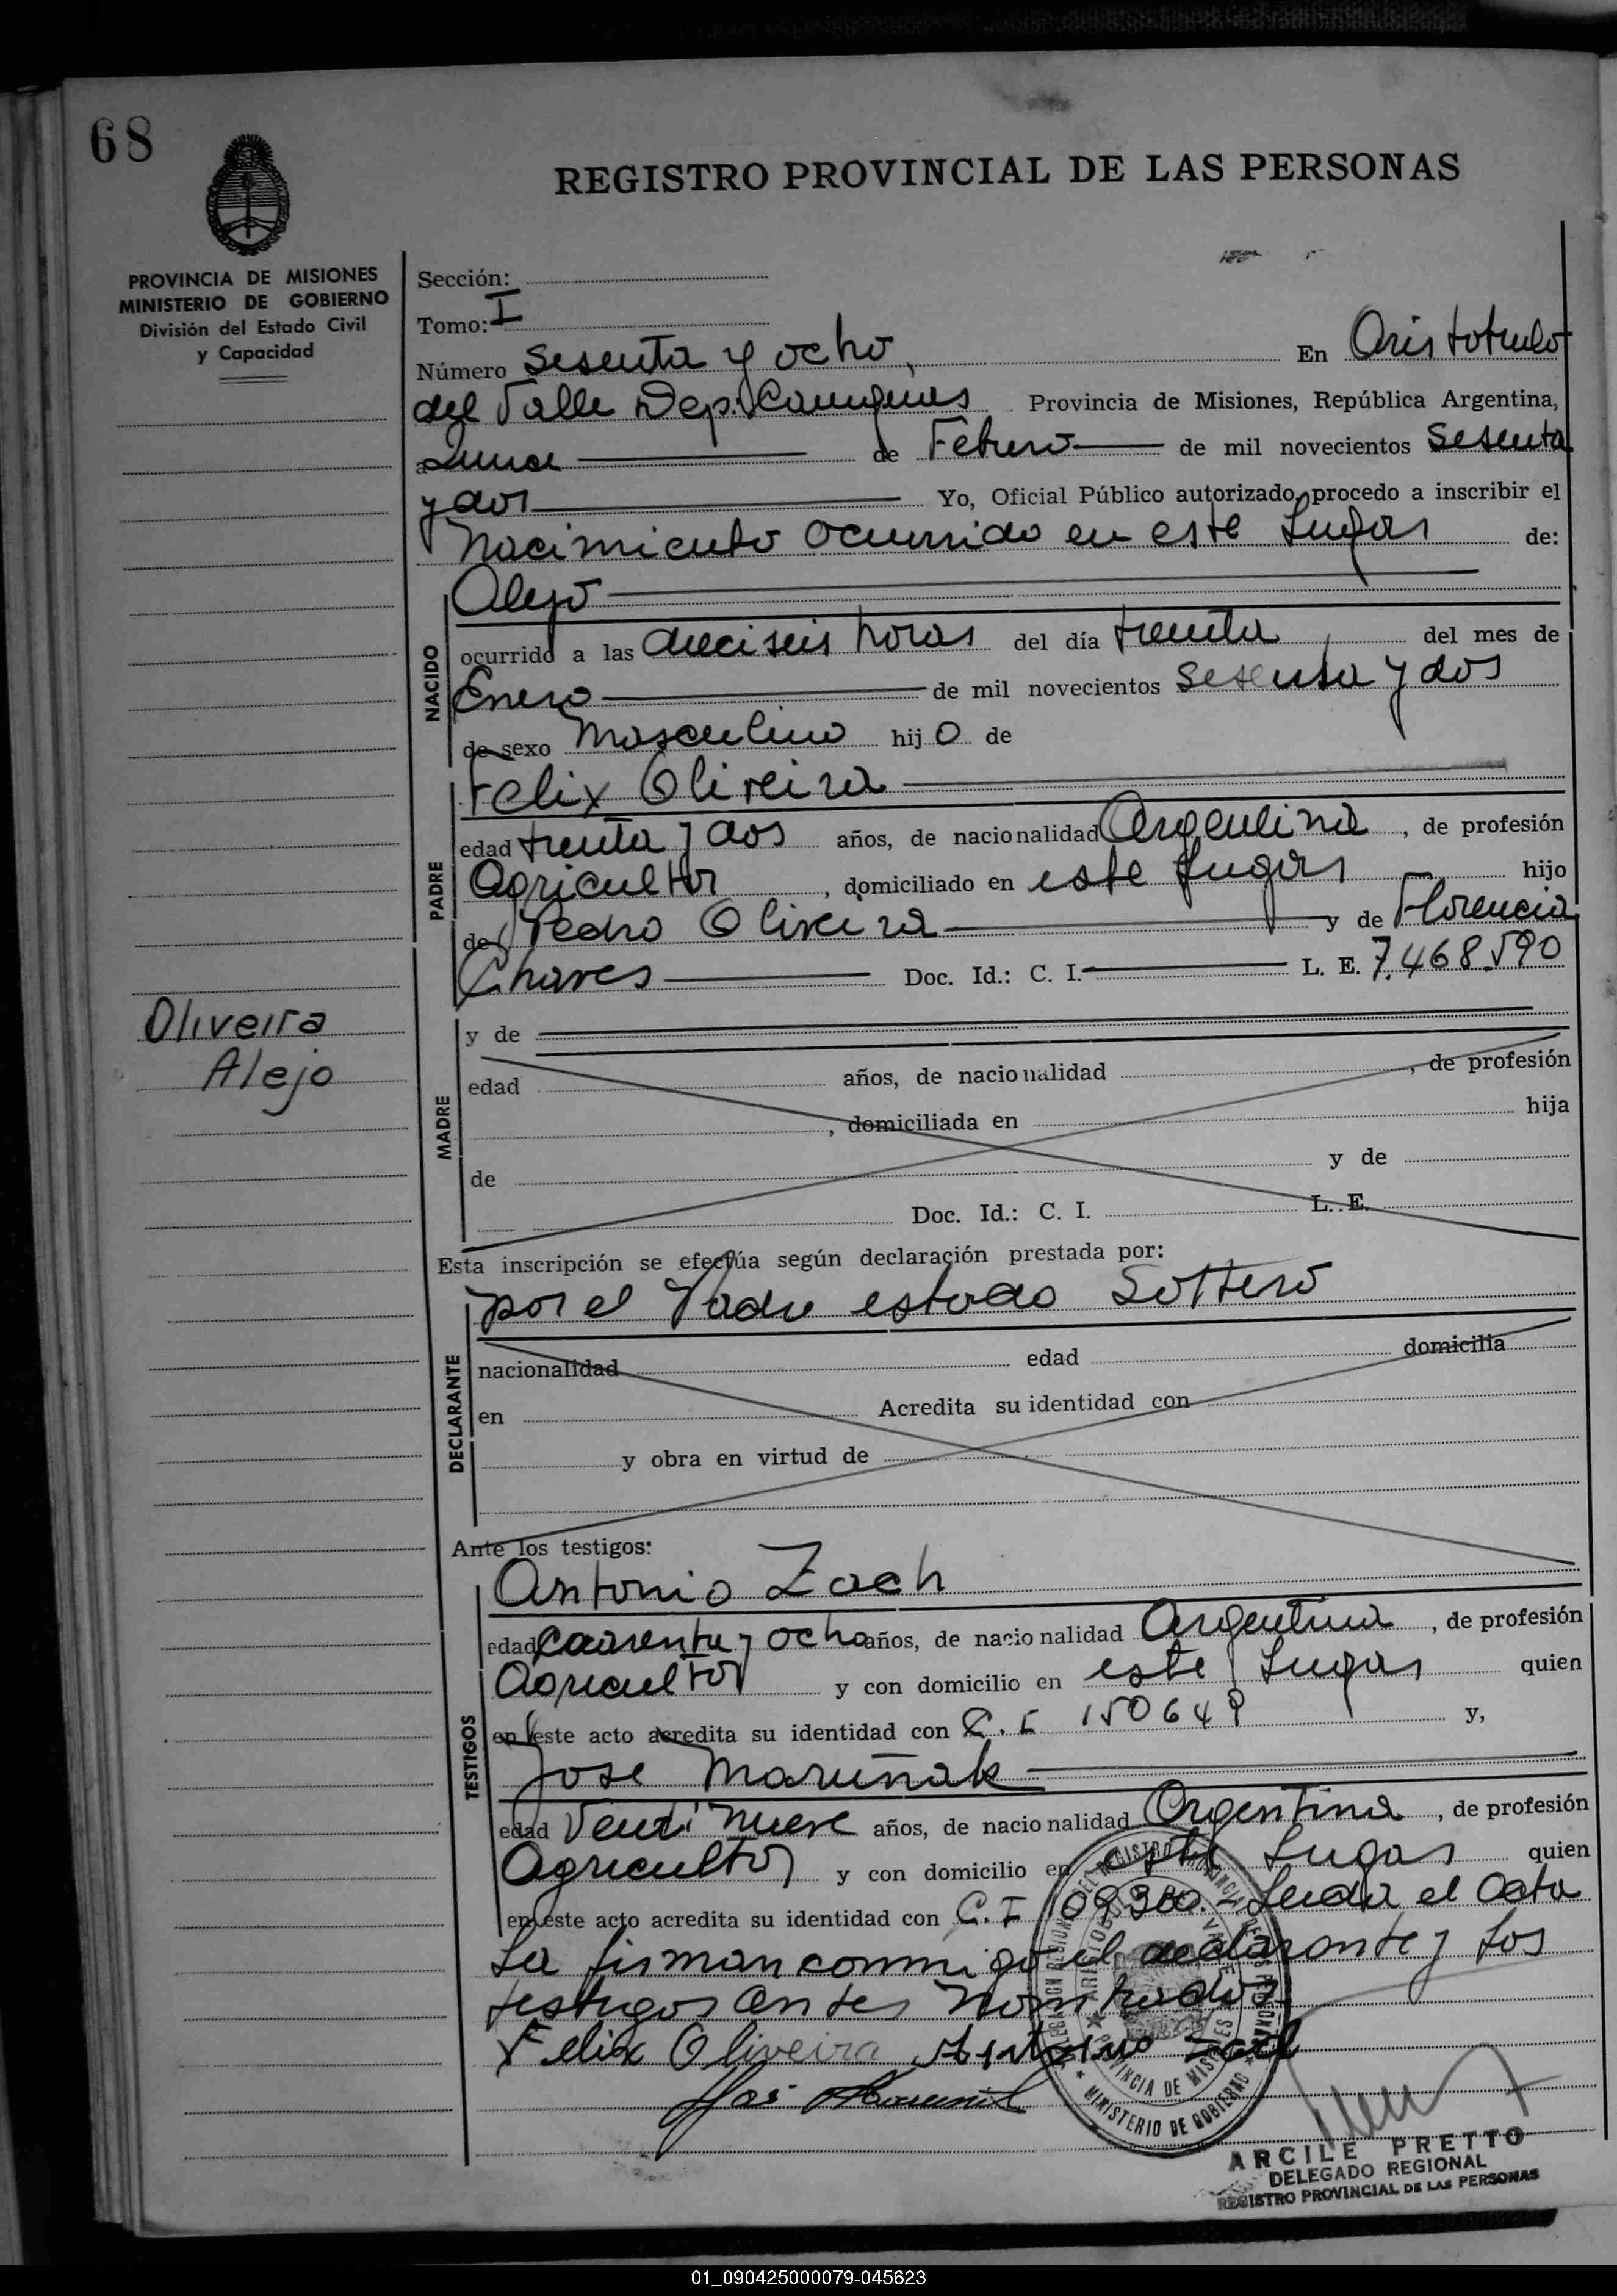 68
REGISTRO PROVINCIAL DE LAS PERSONAS
PROVINCIA DE MISIONES
MINISTERIO DE GOBIERNO
División del Estado Civil
y Capacidad
Sección:
Tomo: I
Número sesenta y ocho, En Aristobulo
del Valle Dep. Cainguas Provincia de Misiones, República Argentina,
a de Febrero de mil novecientos sesenta
y dos Yo, Oficial Público autorizado, procedo a inscribir el
Nacimiento ocurrido en este Lugar de:
NACIDO
Alejo
ocurrido a las dieciseis horas del día treinta del mes de
Enero de mil novecientos sesenta y dos
de sexo Masculino hijo de
PADRE
Felix Oliveira
edad treinta y dos años, de nacionalidad Argentina, de profesión
Agricultor, domiciliado en este Lugar hijo
de Pedro Oliveira y de Florencia
Chaves Doc. Id.: C. I. L. E. 7.468.590
Oliveira
Alejo
MADRE
y de
edad años, de nacionalidad , de profesión
, domiciliada en hija
de y de
Doc. Id.: C. I. L. E.
Esta inscripción se efectúa según declaración prestada por:
DECLARANTE
por el Padre estado Soltero
nacionalidad edad domicilia
en Acredita su identidad con
y obra en virtud de
Ante los testigos:
TESTIGOS
Antonio Zach
edad Cuarenta y ocho años, de nacionalidad Argentina, de profesión
Agricultor y con domicilio en este Lugar quien
en este acto acredita su identidad con C. I 150649 y,
Jose Maruñak
edad Venti nueve años, de nacionalidad Argentina, de profesión
Agricultor y con domicilio en este Lugar quien
en este acto acredita su identidad con C. I 109300.- Leida el Acta
La firman conmigo el declarante y Los
testigos antes nombrados
Felix Oliveira Antonio Zach
ARCILE PRETTO
DELEGADO REGIONAL
REGISTRO PROVINCIAL DE LAS PERSONAS
MINISTERIO DE GOBIERNO
01_090425000079-045623